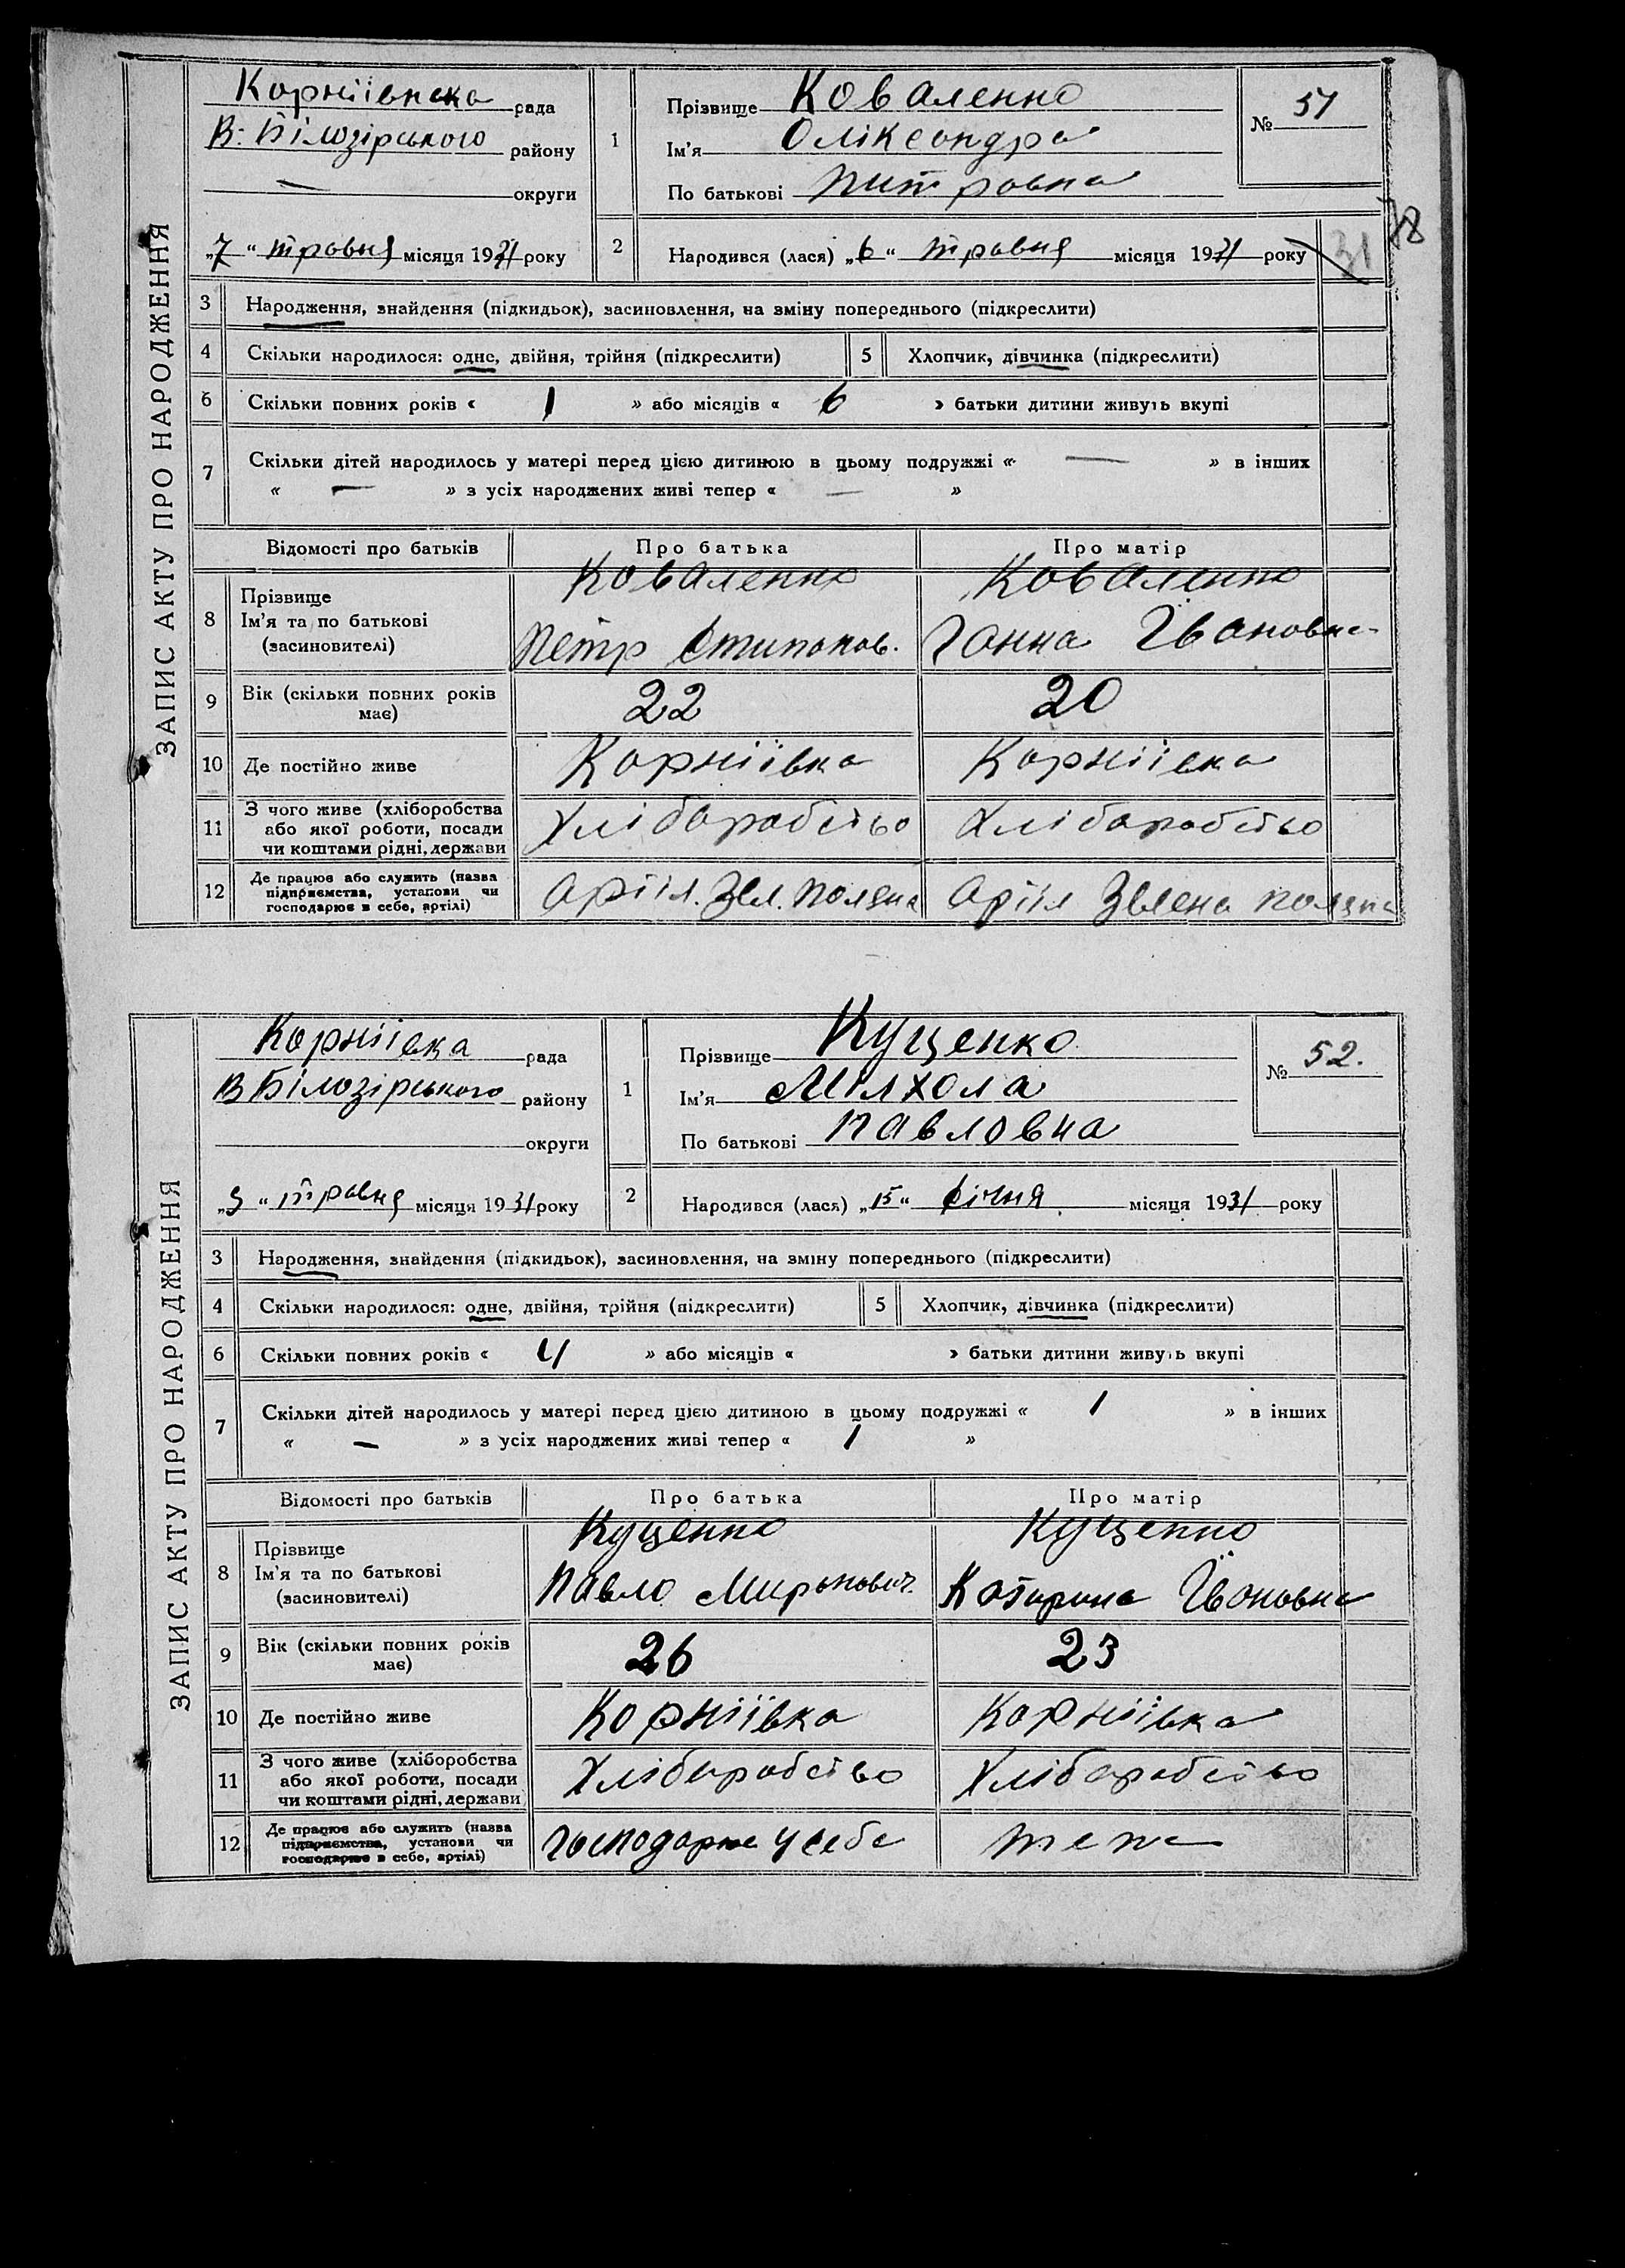 ЗАПИС АКТУ ПРО НАРОДЖЕННЯ
Корніівнска рада
В. Білозірського району
— округи
„7“ травня місяця 1931 року
1
Прізвище Коваленко
Ім'я Оліксандра
По батькові Питровна
№ 51
78
31
2 Народився (лася) „6“ травня місяця 1931 року
3 Народження, знайдення (підкидьок), засиновлення, на зміну попереднього (підкреслити)
4 Скільки народилося: одне, двійня, трійня (підкреслити) 5 Хлопчик, дівчинка (підкреслити)
6 Скільки повних років « 1 » або місяців « 6 » батьки дитини живуть вкупі
7 Скільки дітей народилось у матері перед цією дитиною в цьому подружжі « — » в інших
« — » з усіх народжених живі тепер « — »
Відомості про батьків Про батька Про матір
8 Прізвище Коваленко Коваленко
Ім'я та по батькові
(засиновителі) Петр Стипонов. Ганна Івановна
9 Вік (скільки повних років має) 22 20
10 Де постійно живе Корніівка Корніівка
11 З чого живе (хліборобства
або якої роботи, посади Хліборобство Хліборобство
чи коштами рідні, держави
12 Де працює або служить (назва
підприємства, установи чи Арііл. Звл. Поляна Арііл Звлена поляна
господарює в себе, артілі)
ЗАПИС АКТУ ПРО НАРОДЖЕННЯ
Корніівка рада
В Білозірського району
округи
„9“ травня місяця 1931 року
1
Прізвище Куценко
Ім'я Мілхола
По батькові Павловна
№ 52.
2 Народився (лася) „15“ січня місяця 1931 року
3 Народження, знайдення (підкидьок), засиновлення, на зміну попереднього (підкреслити)
4 Скільки народилося: одне, двійня, трійня (підкреслити) 5 Хлопчик, дівчинка (підкреслити)
6 Скільки повних років « 4 » або місяців « » батьки дитини живуть вкупі
7 Скільки дітей народилось у матері перед цією дитиною в цьому подружжі « 1 » в інших
« — » з усіх народжених живі тепер « 1 »
Відомості про батьків Про батька Про матір
8 Прізвище Куценко Куценко
Ім'я та по батькові
(засиновителі) Павло Миронович. Катирина Івановна
9 Вік (скільки повних років має) 26 23
10 Де постійно живе Корніівка Корніівка
11 З чого живе (хліборобства
або якої роботи, посади Хліборобство Хліборобство
чи коштами рідні, держави
12 Де працює або служить (назва
підприємства, установи чи Господарює у себе теж
господарює в себе, артілі)